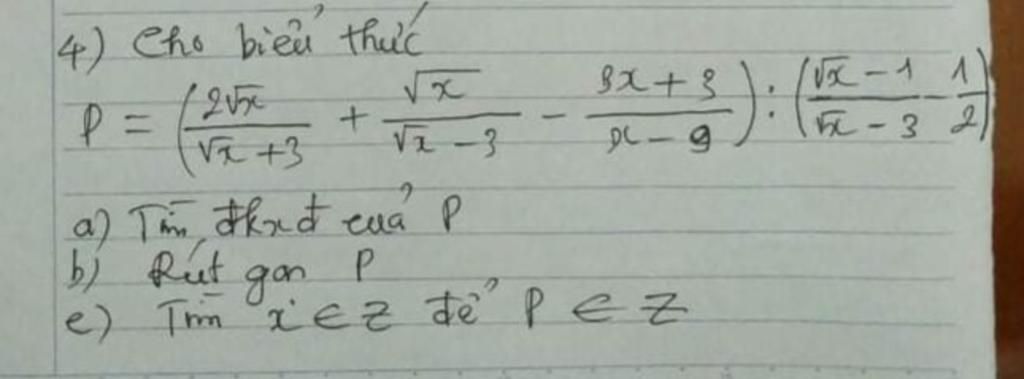 4) Cho biểu thức
P = (2√x / (√x + 3) + √x / (√x - 3) - (3x + 3) / (x - 9)) : ((√x - 1) / (√x - 3) - 1/2)
a) Tìm đkxđ của P
b) Rút gọn P
c) Tìm x ∈ Z để P ∈ Z